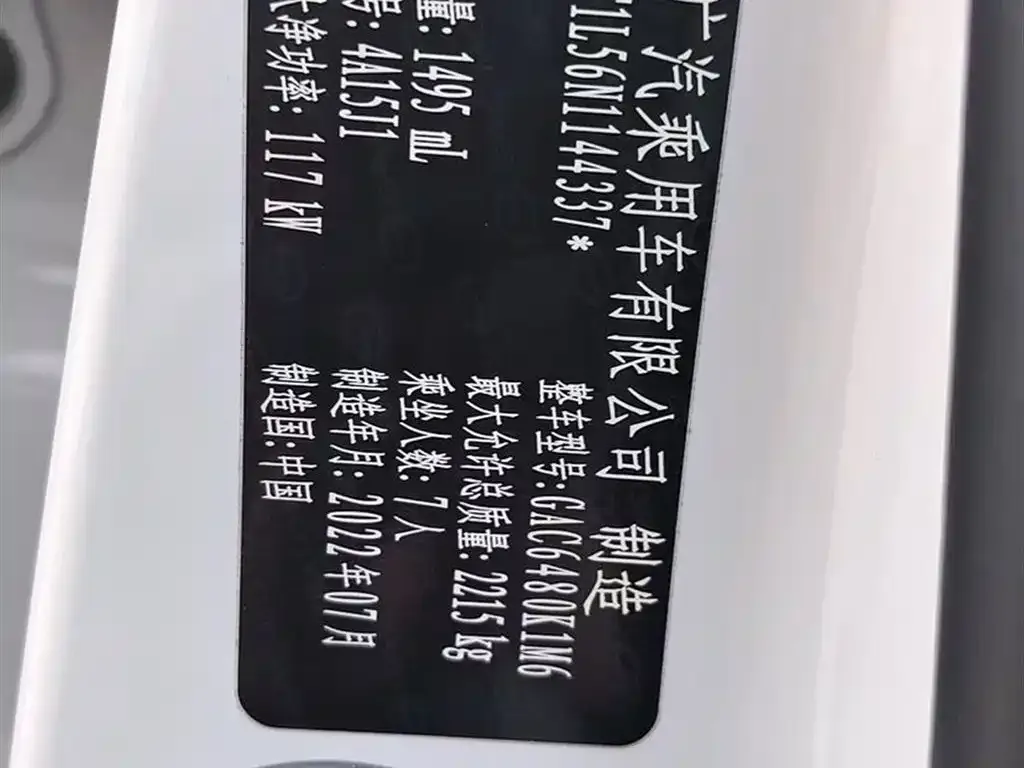 广汽乘用车有限公司 制造
1L56N1144337*
整车型号:GAC6480K1M6
最大允许总质量:2215kg
量:1495 mL
乘坐人数:7人
号:4A15J1
制造年月:2022年07月
净功率:117kW
制造国:中国